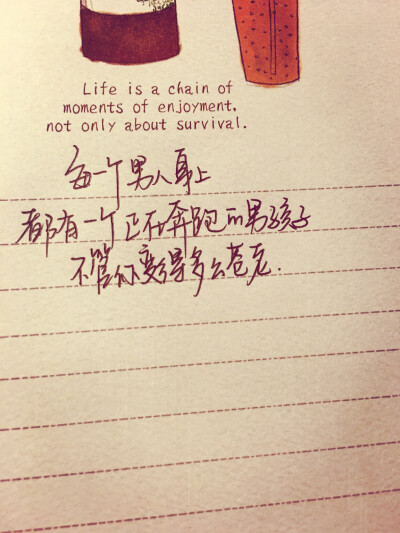 Life is a chain of
moments of enjoyment,
not only about survival.
每一个男人身上
都有一个正在奔跑的男孩子
不管你变得多么苍老.